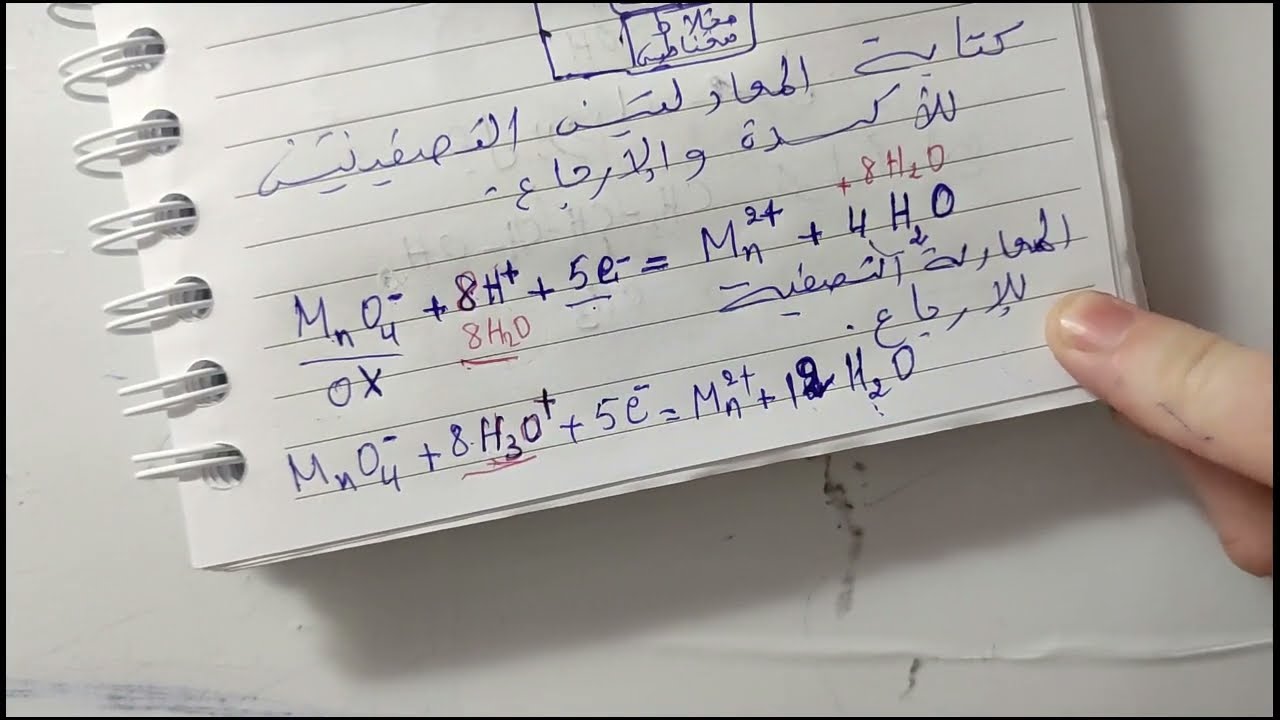 مخلاط
مغناطيسي
كتابة المعادلتين النصفيتين
للأكسدة والإرجاع.
+ 8H₂O
MnO₄⁻ + 8H⁺ + 5e⁻ = Mn²⁺ + 4H₂O
8H₂O
OX
المعادلة النصفية
للإرجاع.
MnO₄⁻ + 8H₃O⁺ + 5e⁻ = Mn²⁺ + 12H₂O